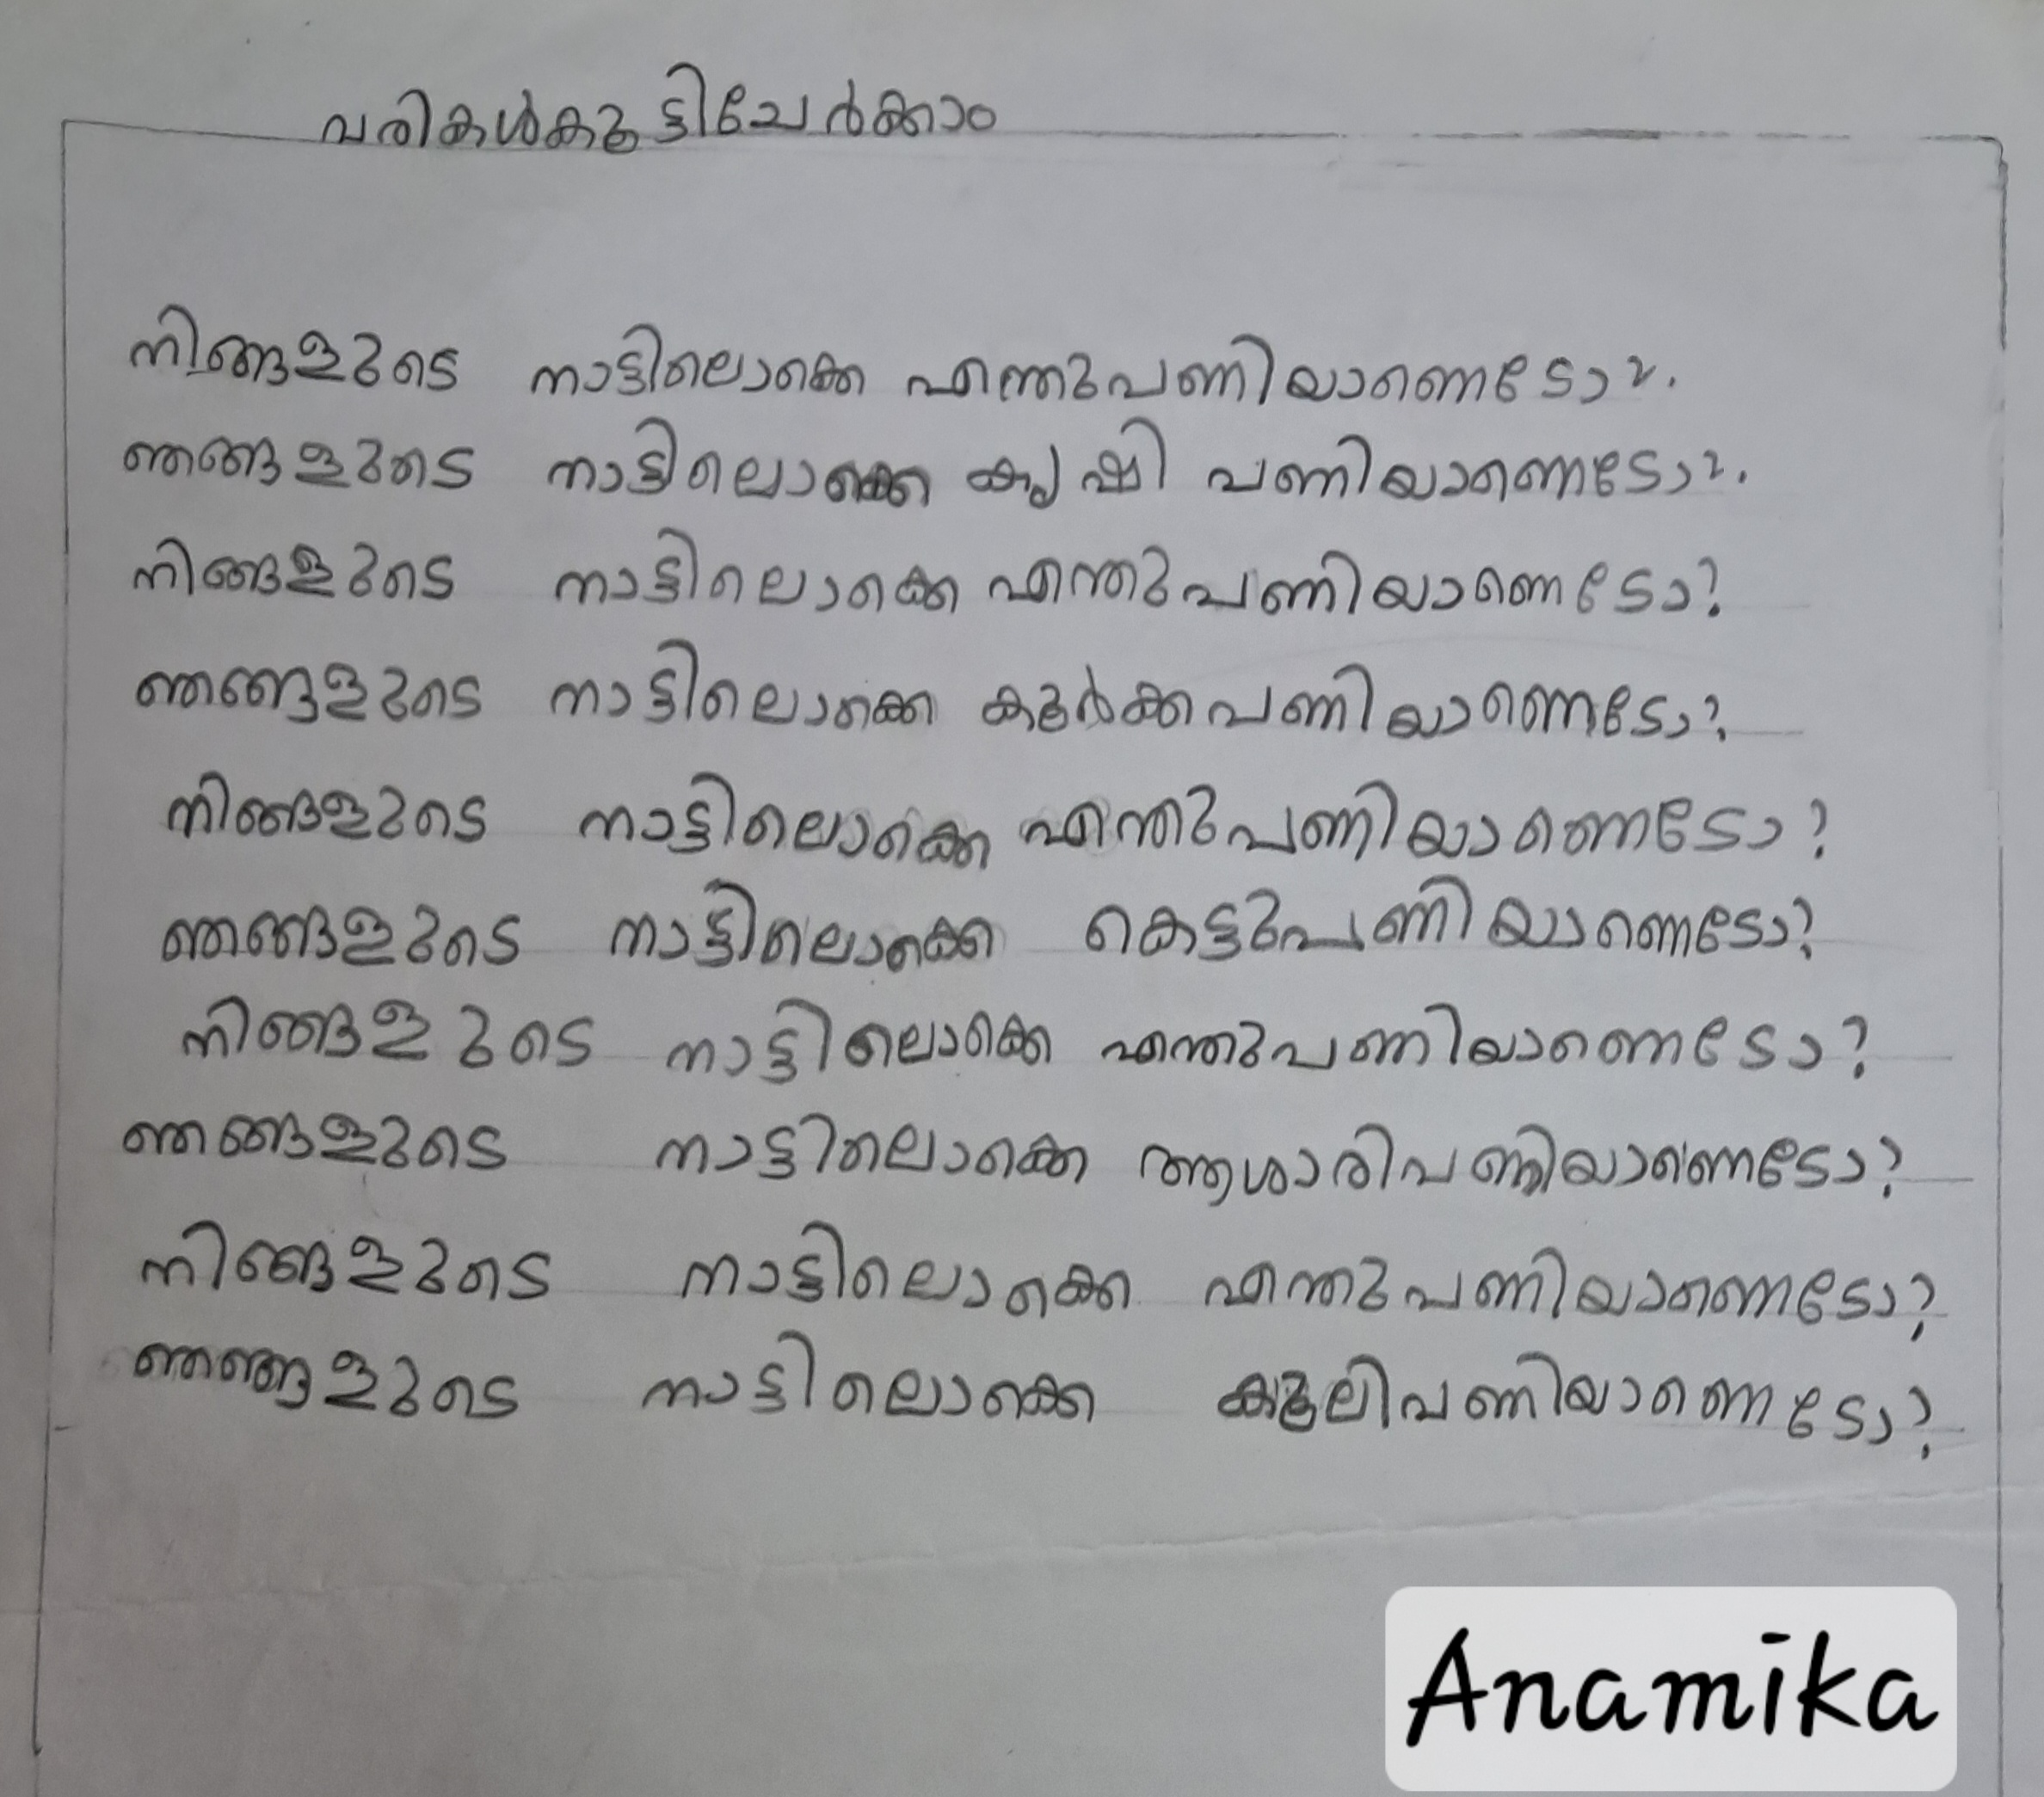 വരികൾകൂട്ടിചേർക്കാം
നിങ്ങളുടെ നാട്ടിലൊക്കെ എന്തുപണിയാണെടോ?
ഞങ്ങളുടെ നാട്ടിലൊക്കെ കൃഷി പണിയാണെടോ?
നിങ്ങളുടെ നാട്ടിലൊക്കെ എന്തുപണിയാണെടോ?
ഞങ്ങളുടെ നാട്ടിലൊക്കെ കൂർക്കപണിയാണെടോ?
നിങ്ങളുടെ നാട്ടിലൊക്കെ എന്തുപണിയാണെടോ?
ഞങ്ങളുടെ നാട്ടിലൊക്കെ കെട്ടുപണിയാണെടോ?
നിങ്ങളുടെ നാട്ടിലൊക്കെ എന്തുപണിയാണെടോ?
ഞങ്ങളുടെ നാട്ടിലൊക്കെ ആശാരിപണിയാണെടോ?
നിങ്ങളുടെ നാട്ടിലൊക്കെ എന്തുപണിയാണെടോ?
ഞങ്ങളുടെ നാട്ടിലൊക്കെ കൂലിപണിയാണെടോ?
Anamika